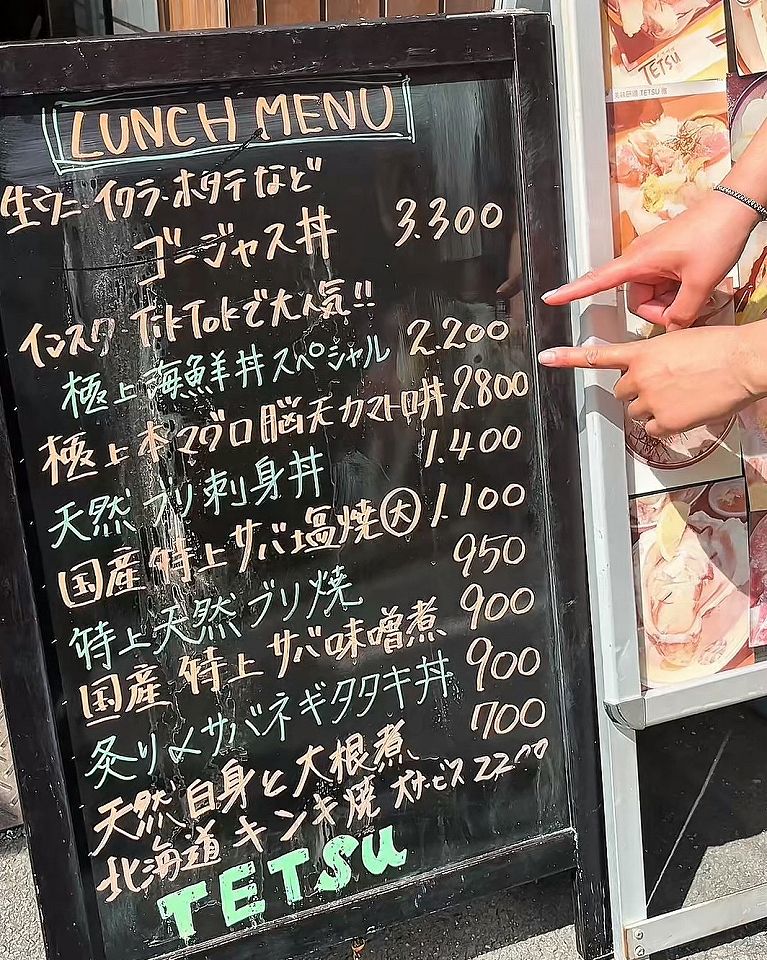 LUNCH MENU
生ウニ・イクラ・ホタテなど
ゴージャス丼 3.300
インスタ TikTokで大人気!!
極上海鮮丼スペシャル 2.200
極上本マグロ脳天カマトロ丼 2800
天然ブリ刺身丼 1.400
国産特上サバ塩焼大 1.100
特上天然ブリ焼 950
国産特上サバ味噌煮 900
炙り〆サバネギタタキ丼 900
天然白身と大根煮 700
北海道キンキ焼 大サービス 2200
TETSU
TETSU